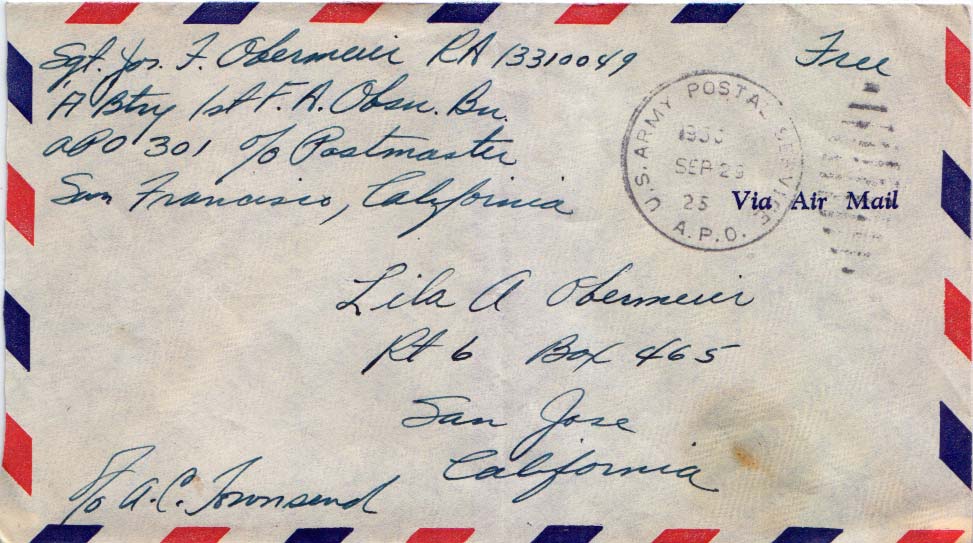 Sgt. Jos. F. Obermeier RA 13310049
Free
"A" Btry 1st F. A. Obsn. Bn.
APO 301 c/o Postmaster
San Francisco, California
U.S. ARMY POSTAL SERVICE
SEP 29
25
A.P.O.
Via Air Mail
Lila A Obermeier
Rt 6 Box 465
San Jose
California
c/o A. C. Townsend